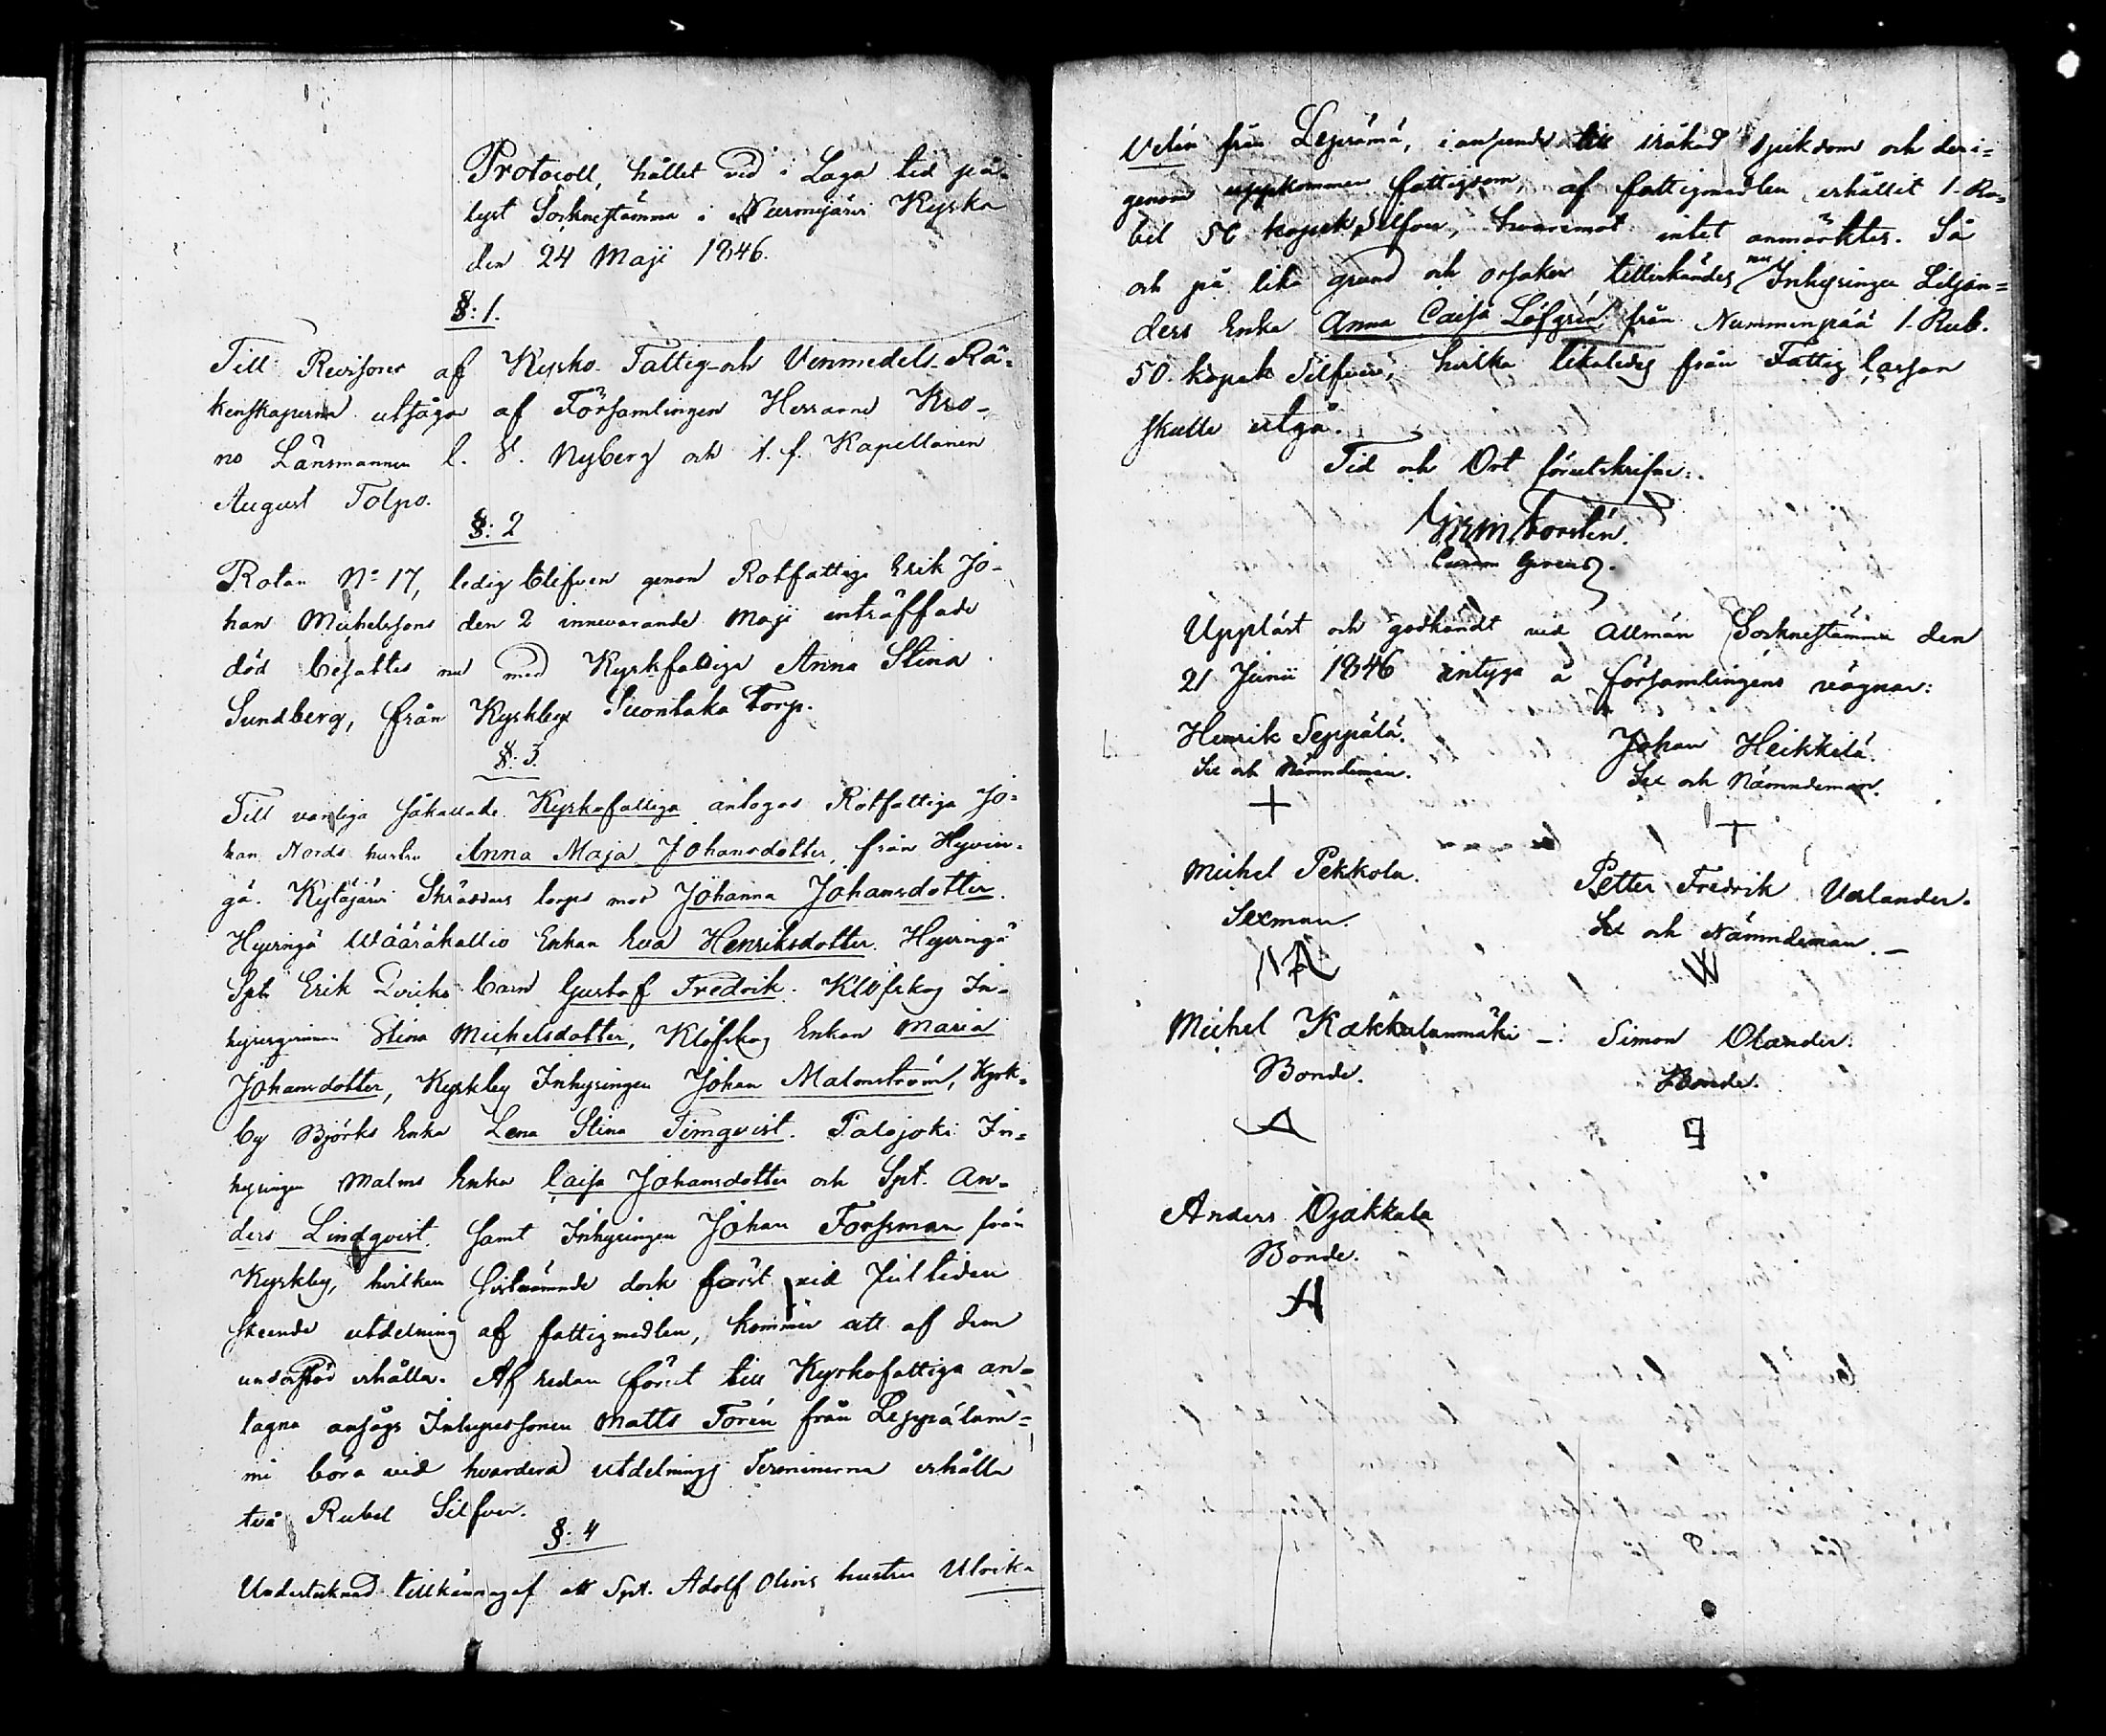 Protocoll, hållet vid i Laga tid på-
lyst Socknestämma i Nurmijärvi Kyrka
den 24 Maji 1846.
§: 1.
Till Revisorer af Kyrko- Fattig- och Vinmedels-Rä-
kenskaperna utsågos af Församlingen Herrarne Kro-
no Länsmannen C. S. Nyberg och t. f. Kapellanen
August Tolpo.
§: 2
Rotan No 17, ledig blifven genom Rotfattige Erik Jo-
han Michelssons den 2 innevarande Maji inträffade
död besattes nu med Kyrkfattiga Anna Stina
Sundberg, från Kyrkby Suontaka Torp.
§: 3.
Till vanliga såkallade Kyrkofattiga antogos Rotfattiga Jo-
han Nords hustru Anna Maja Johansdotter, från Hyvin-
gä. Kytäjärvi Skräddars torps mor Johanna Johansdotter.
Hyvingä Wääräkallio Enkan Eva Henriksdotter. Hyvingä
Spt. Erik Qvicks barn Gustaf Fredrik. Klöfskog In-
hysesqvinnan Stina Michelsdotter, Klöfskog Enkan Maria
Johansdotter, Kyrkby Inhysingen Johan Malmström, Kyrk-
by Björks Enka Lena Stina Timqvist. Palojoki In-
hysingen Malms Enka Caisa Johansdotter och Spt. An-
ders Lindqvist samt Inhysingen Johan Forssman från
Kyrkby, hvilken sistnämnde dock först vid Jultiden
skeende utdelning af fattigmedlen, kommer att af dem
understöd erhålla. Af redan förut till Kyrkofattiga an-
tagna ansågs Inhysespersonen Matts Torén från Leppälam-
mi böra vid hvardera utdelnings Terminerna erhålla
två Rubel Silfver.
§: 4
Undertecknad tillkännagaf att Spt. Adolf Olins hustru Ulrika
Velin från Lepsämä, i anseende till iråkad sjukdom och deri-
genom uppkommen fattigdom, af fattigmedlen erhållit 1. Ru-
bel 50 kopek Silfver, hvaremot intet anmärktes. Så
och på lika grund och orsaker tillerkändes nu Inhysingen Liljan-
ders Enka Anna Caisa Löfgrén från Nummenpää 1. Rub.
50. kopek Silfver, hvilka likaledes från Fattig Cassan
skulle utgå.
Tid och Ort förutskrifne:
Forstén.
Uppläst och godkändt vid Allmän Socknestämma den
21 Junii 1846 intyga å församlingens vägnar:
Henrik Seppälä. Johan Heikkilä.
Sex och Nämndeman. Sex och Nämndeman.
Michel Pekkola. Petter Fredrik Verlander.
Sexman. Sex och Nämndeman. -
Michel Kakkulanmäki -: Simon Olander.
Bonde. Bonde.
Anders Ojakkala
Bonde.